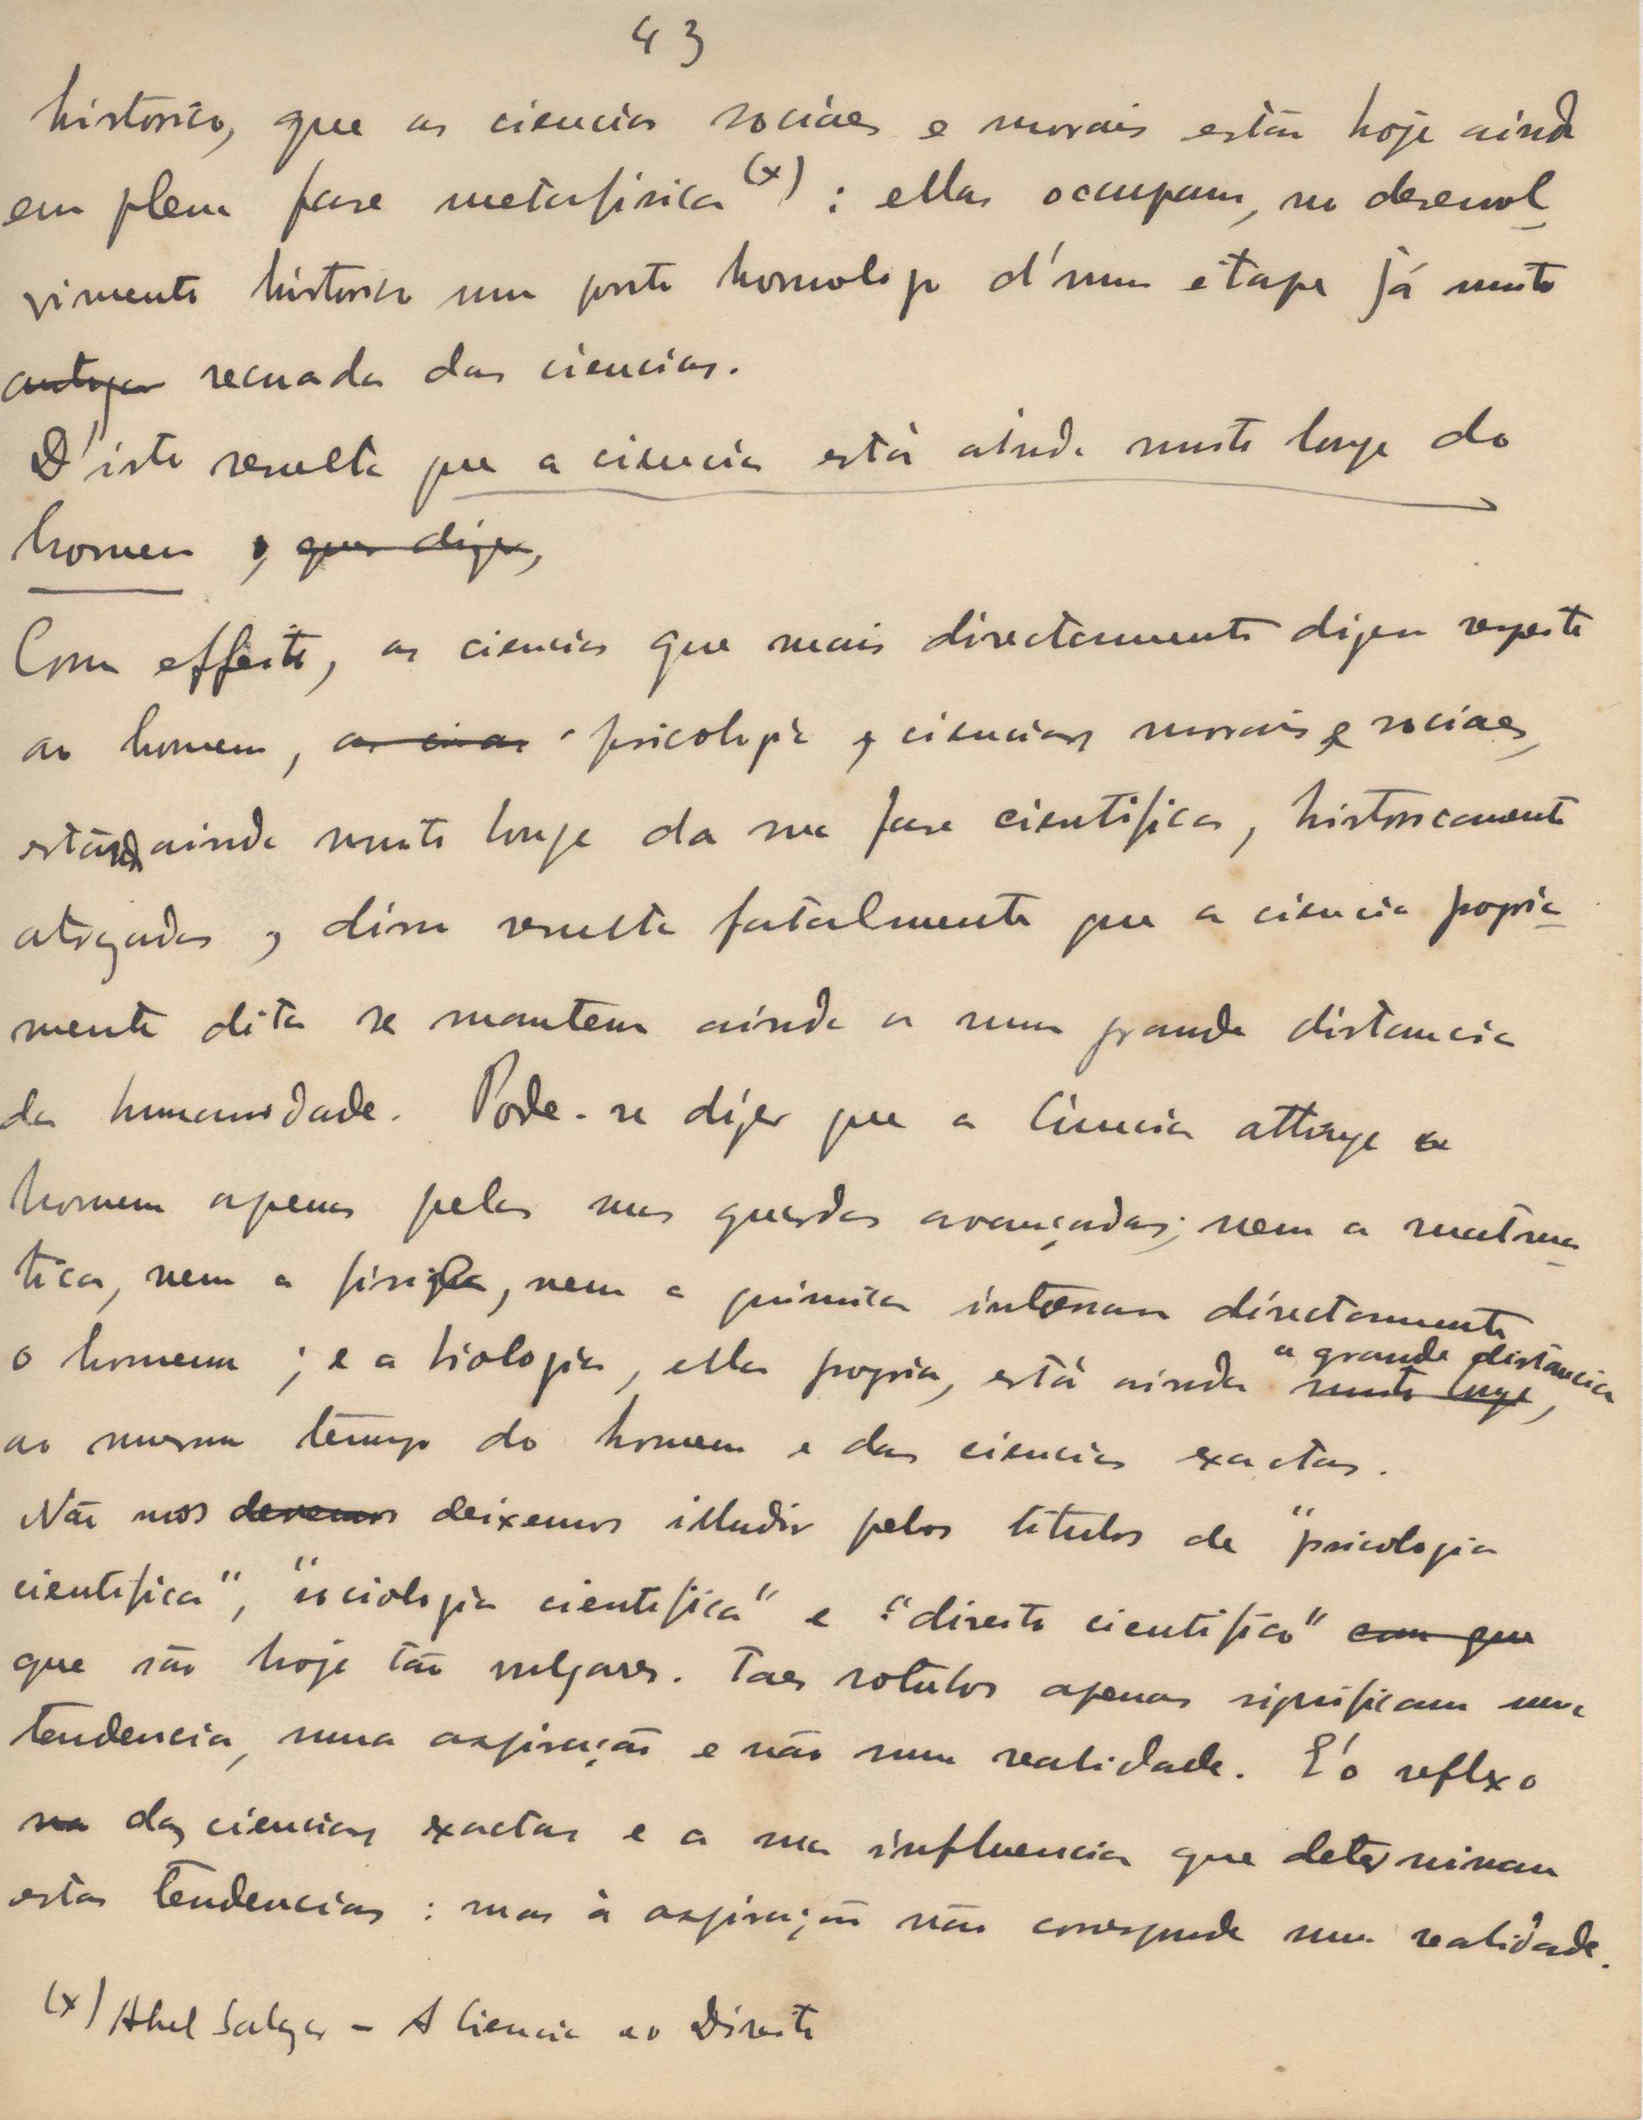 43
historico, que as ciencias sociaes e morais estão hoje ainda
em plena fase metafisica (x) : ellas occupam, no desenvol-
vimento historico um posto homologo d'uma etape já muito
antiga recuada das ciencias.
D'isto resulta que a ciencia está ainda muito longe do
homem , quer dizer,
Com effeito, as ciencias que mais directamente dizem respeito
ao homem, psicologia, ciencias morais e sociaes,
estão ainda muito longe da sua fase cientifica, historicamente
atrazadas, disso resulta fatalmente que a ciencia propria-
mente dita se mantem ainda a uma grande distancia
da humanidade. Pode-se dizer que a Ciencia attinge o
homem apenas pelas suas guardas avançadas; nem a matema-
tica, nem a fisica, nem a quimica interessam directamente
o homem ; e a biologia, ella propria, está ainda muito longe,
a grande distancia
ao mesmo tempo do homem e das ciencias exactas.
Não nos devemos deixemos illudir pelos titulos de "psicologia
cientifica", "sociologia cientifica" e "direito cientifico" com que
que são hoje tão vulgares. Taes rotulos apenas significam uma
tendencia, uma aspiração e não uma realidade. E' o reflexo
na das ciencias exactas e a sua influencia que determinam
estas tendencias : mas à aspiração não corresponde uma realidade.
(x) Abel Salazar - A Ciencia e o Direito